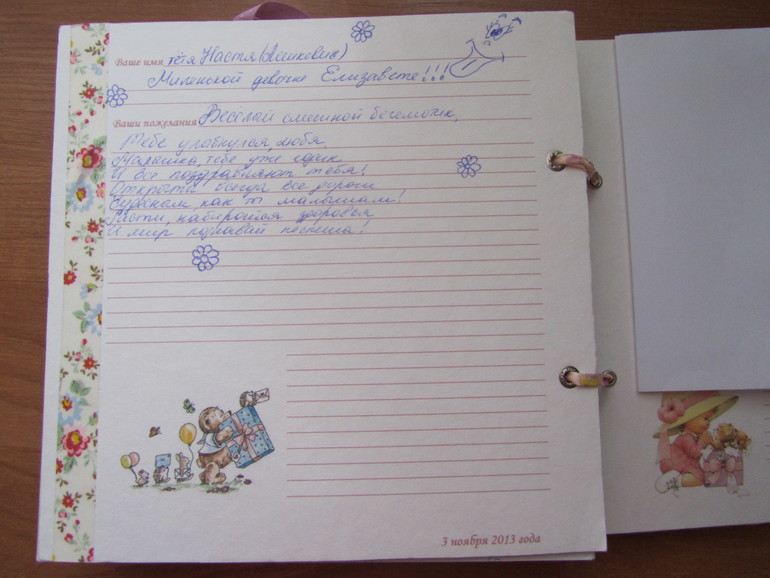 Ваше имя тётя Настя (Яшкевич)
Миленькой девочке Елизавете!!!
Ваши пожелания Весёлый смешной бегемотик,
Тебе улыбнулся, любя,
Малышка, тебе уже годик
И все поздравляют тебя!
Открыты всегда все дороги
Чудесным как ты малышам!
Расти, набирайся здоровья
И мир познавай не спеша!
3 ноября 2013 года